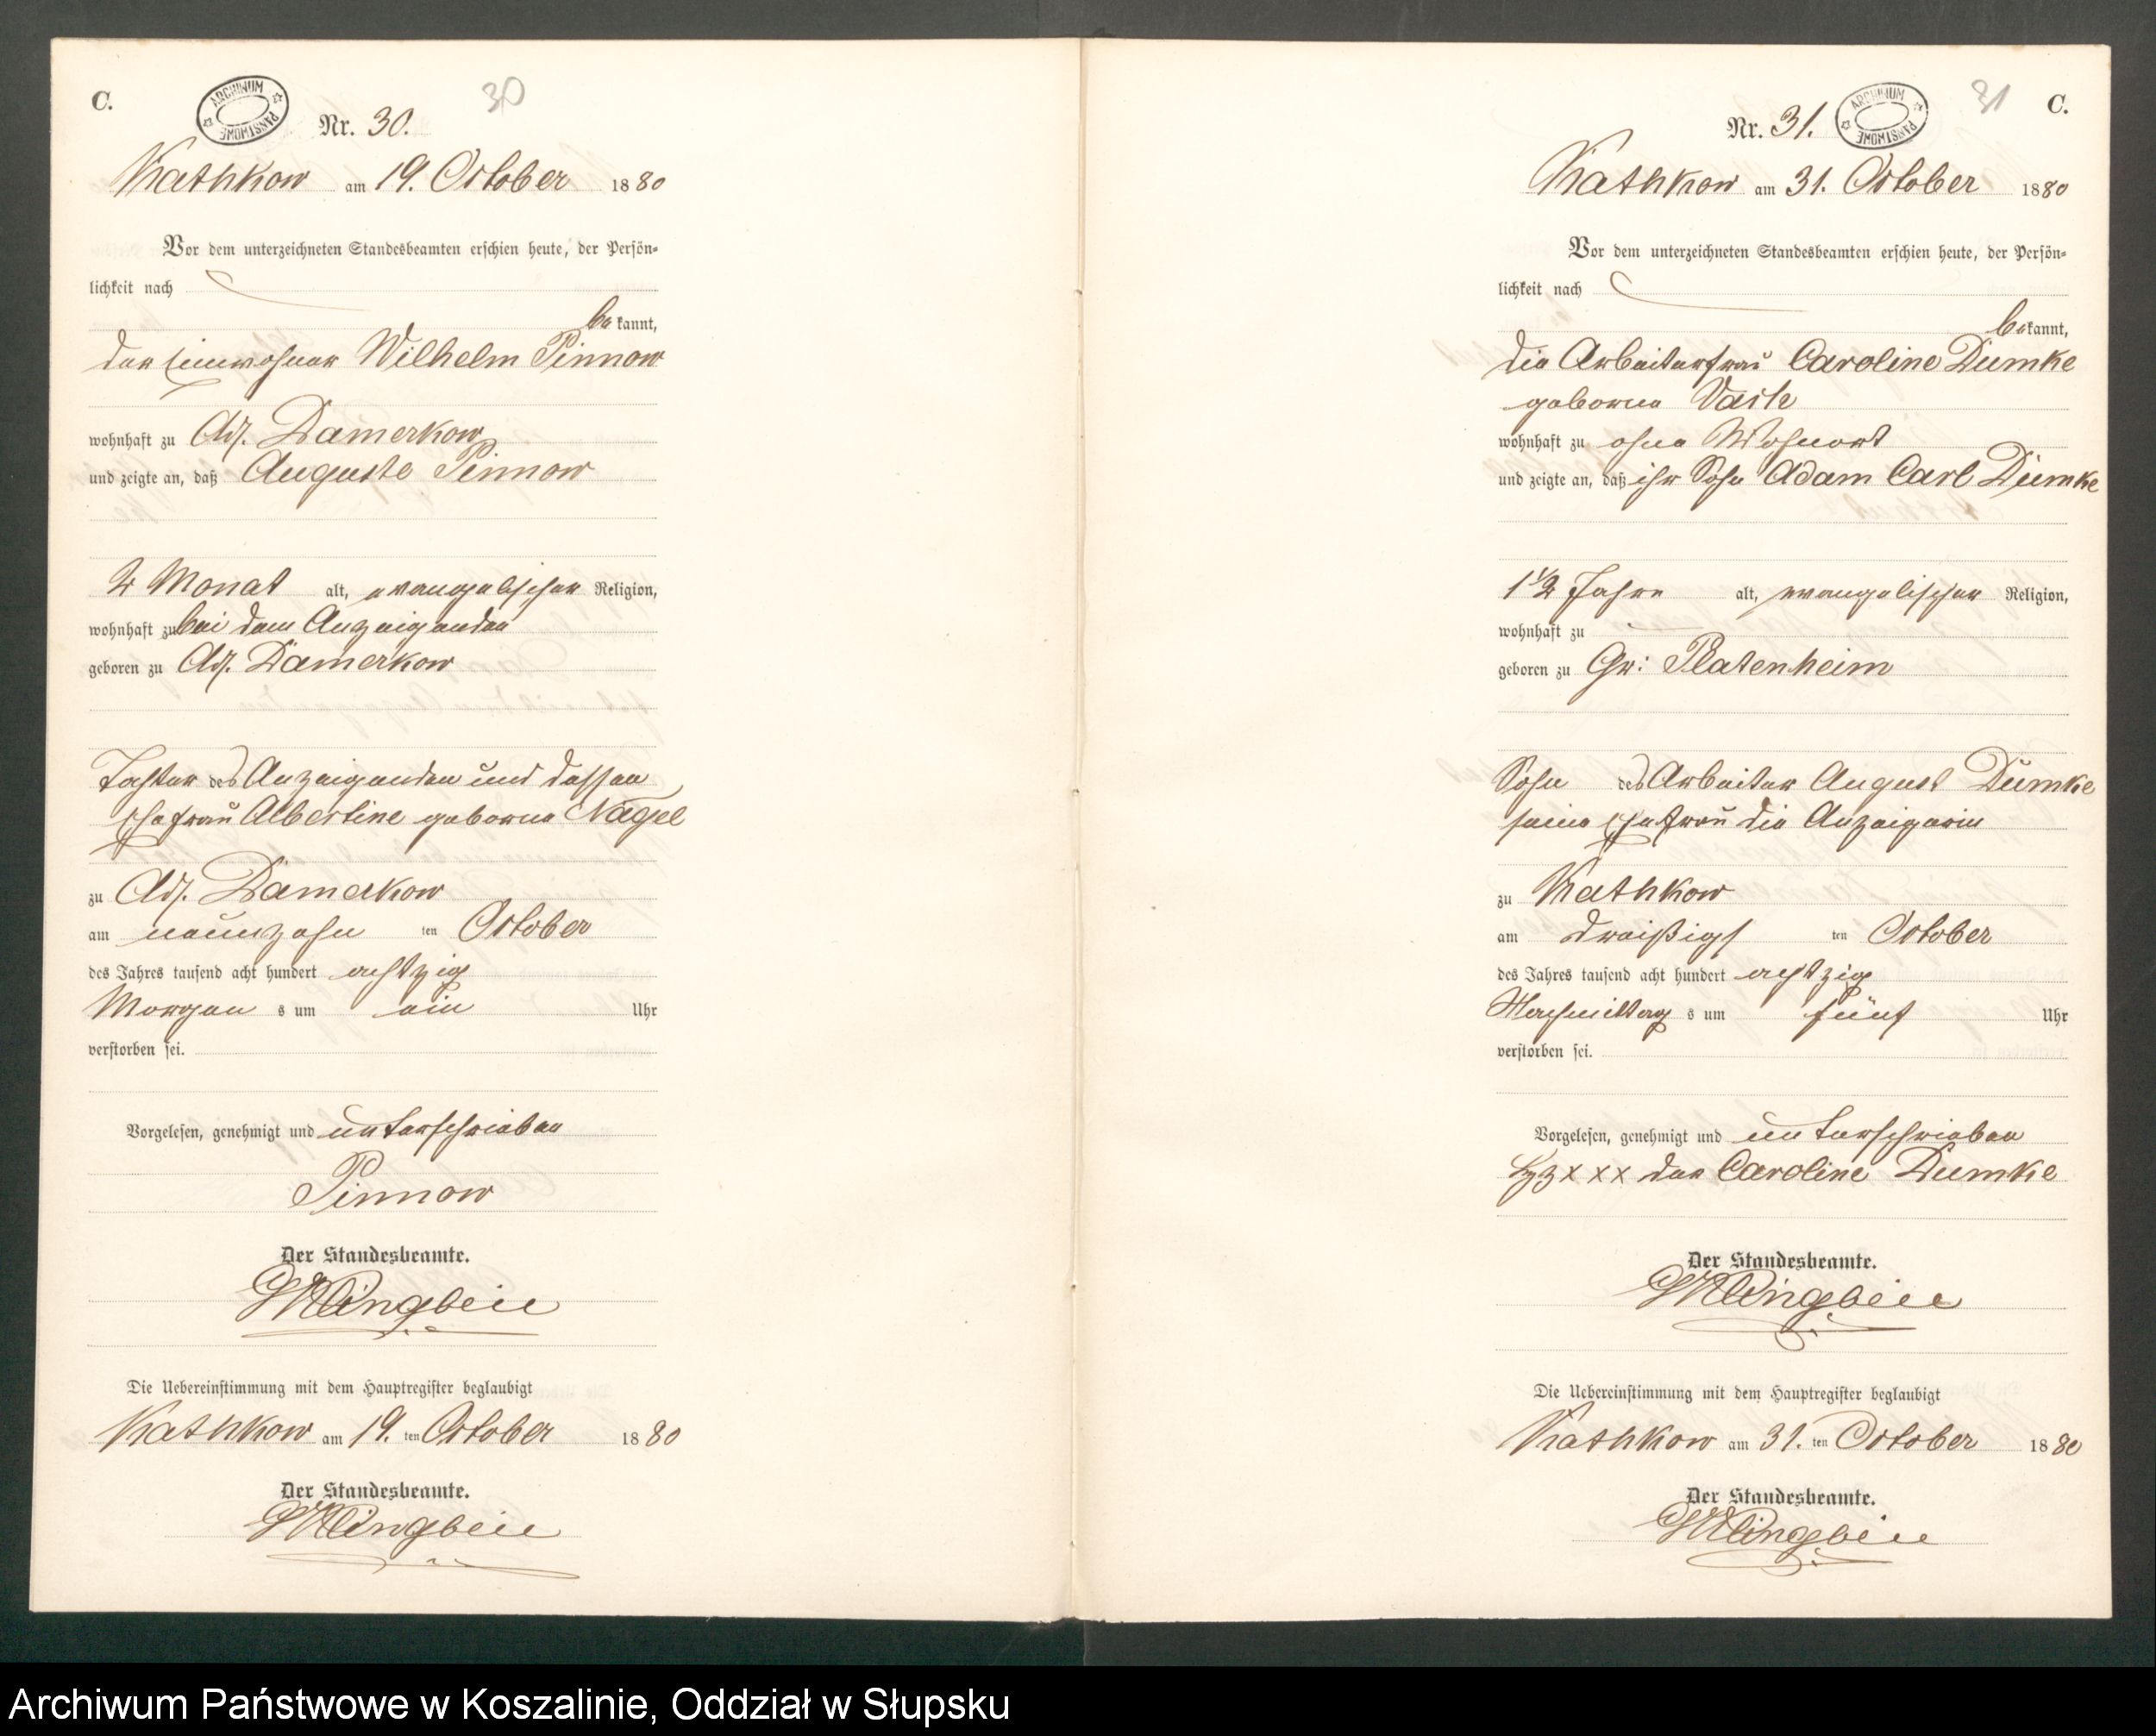 C.
ARCHIWUM PAŃSTWOWE
30
Nr. 30.
Kathkow am 19. October 1880
Vor dem unterzeichneten Standesbeamten erschien heute, der Persön-
lichkeit nach
bekannt,
der Einwohner Wilhelm Pinnow
wohnhaft zu Adl. Damerkow
und zeigte an, daß Auguste Pinnow
2 Monat alt, evangelischer Religion,
wohnhaft zu bei dem Anzeigenden
geboren zu Adl. Damerkow
Tochter des Anzeigenden und dessen
Ehefrau Albertine geborne Nagel
zu Adl. Damerkow
am neunzehn ten October
des Jahres tausend acht hundert achtzig
Morgen s um ein Uhr
verstorben sei.
Vorgelesen, genehmigt und unterschrieben
Pinnow
Der Standesbeamte.
Klingbeil
Die Uebereinstimmung mit dem Hauptregister beglaubigt
Kathkow am 19. ten October 1880
Der Standesbeamte.
Klingbeil
31
C.
Nr. 31.
ARCHIWUM PAŃSTWOWE
Kathkow am 31. October 1880
Vor dem unterzeichneten Standesbeamten erschien heute, der Persön-
lichkeit nach
bekannt,
die Arbeiterfrau Caroline Dumke
geborne
wohnhaft zu ohne Wohnort
und zeigte an, daß ihr Sohn Adam Carl Dumke
1 1/2 Jahre alt, evangelischer Religion,
wohnhaft zu
geboren zu Gr: Platenheim
Sohn des Arbeiter August Dumke
seine Ehefrau die Anzeigerin
zu Kathkow
am dreißigs ten October
des Jahres tausend acht hundert achtzig
Nachmittag s um fünf Uhr
verstorben sei.
Vorgelesen, genehmigt und unterschrieben
Hzz x x x der Caroline Dumke
Der Standesbeamte.
Klingbeil
Die Uebereinstimmung mit dem Hauptregister beglaubigt
Kathkow am 31. ten October 1880
Der Standesbeamte.
Klingbeil
Archiwum Państwowe w Koszalinie, Oddział w Słupsku